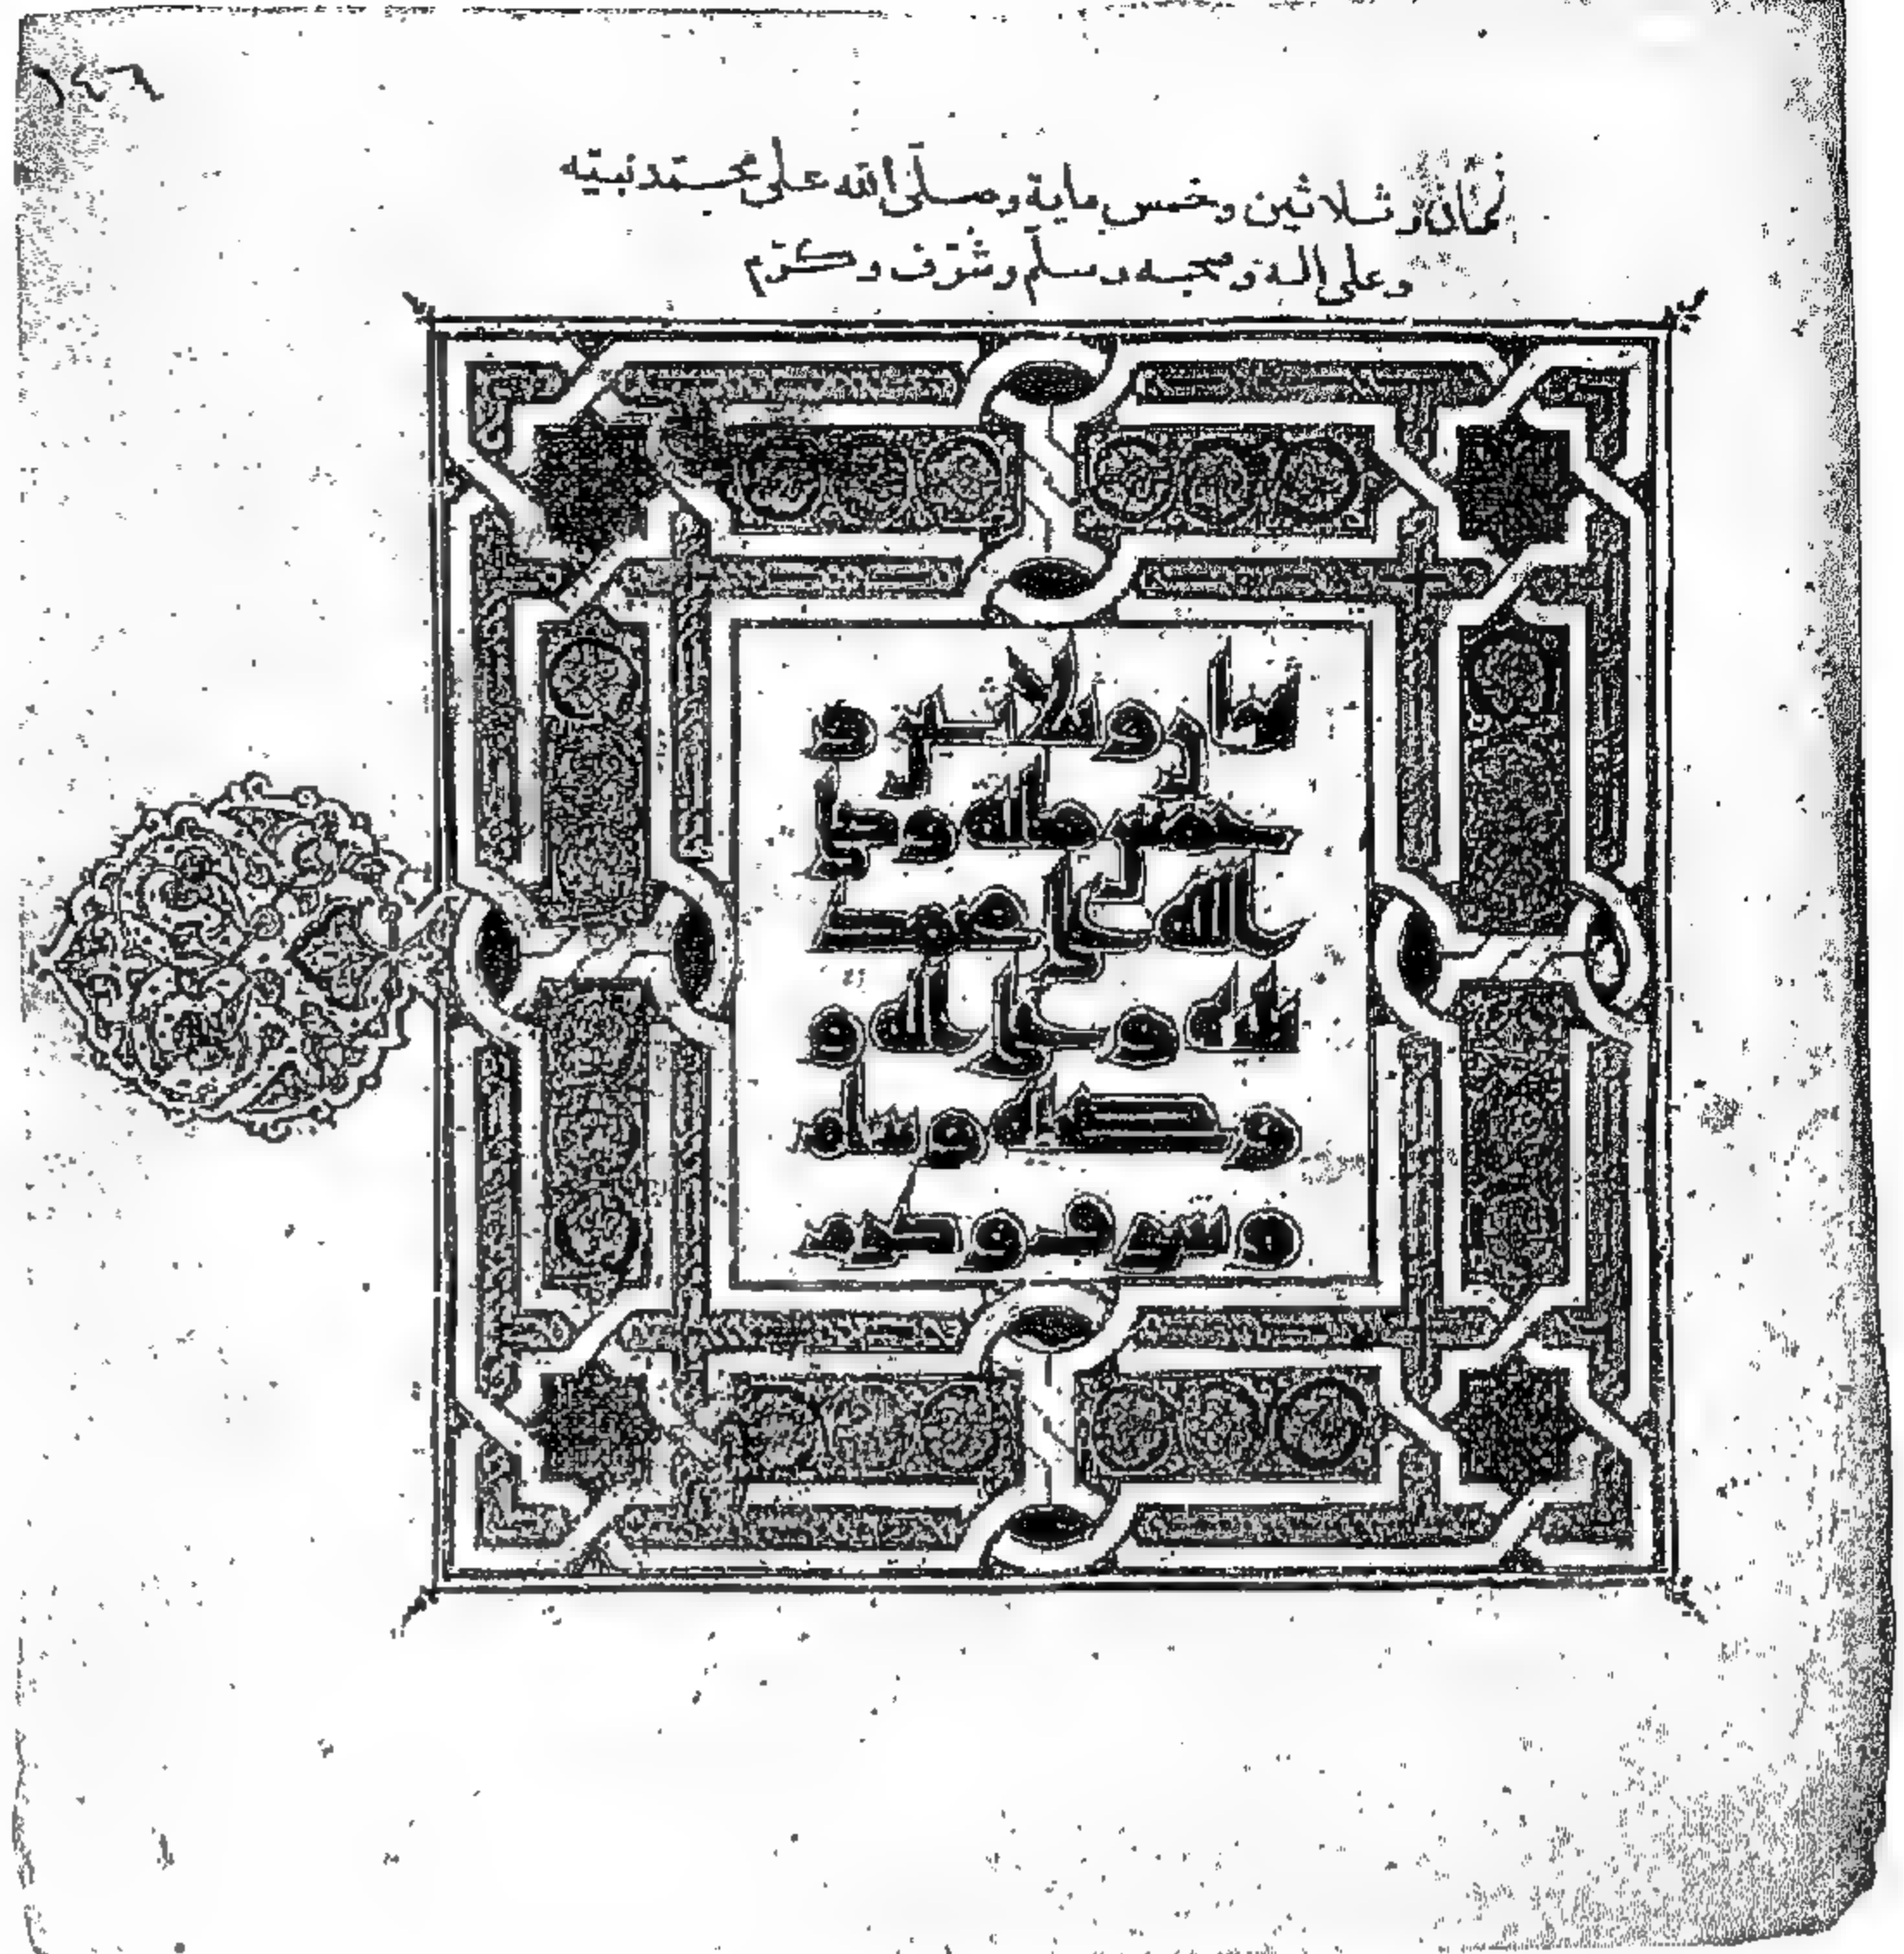 ١٤٦
ثمان وثلاثين وخمس ماية وصلّى الله على محمّد نبيّه
وعلى اله وصحبه وسلّم وشرّف وكرّم
ثمان وثلاثين و
خمس مايه وصلى
الله على محمد
نبيه وعلى اله و
وسلم
وشرف وكرم